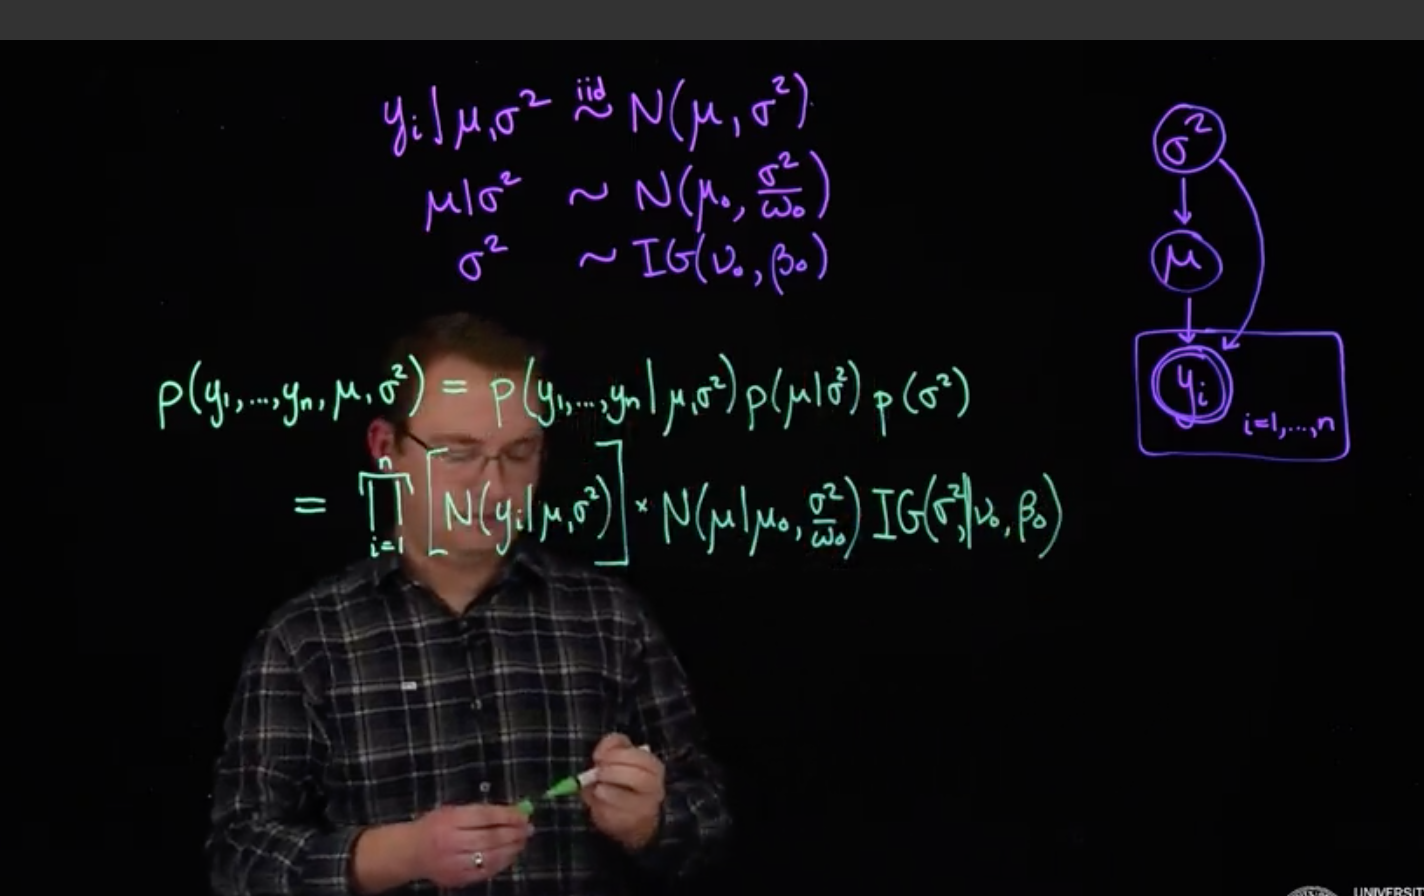 yᵢ | μ, σ² iid ~ N(μ, σ²)
μ|σ² ~ N(μ₀, σ²/ω₀)
σ² ~ IG(ν₀, β₀)
σ²
μ
yᵢ
i=1,...,n
p(y₁,...,yₙ, μ, σ²) = p(y₁,...,yₙ | μ, σ²) p(μ|σ²) p(σ²)
= ∏ᵢ₌₁ⁿ [N(yᵢ | μ, σ²)] × N(μ|μ₀, σ²/ω₀) IG(σ²|ν₀, β₀)